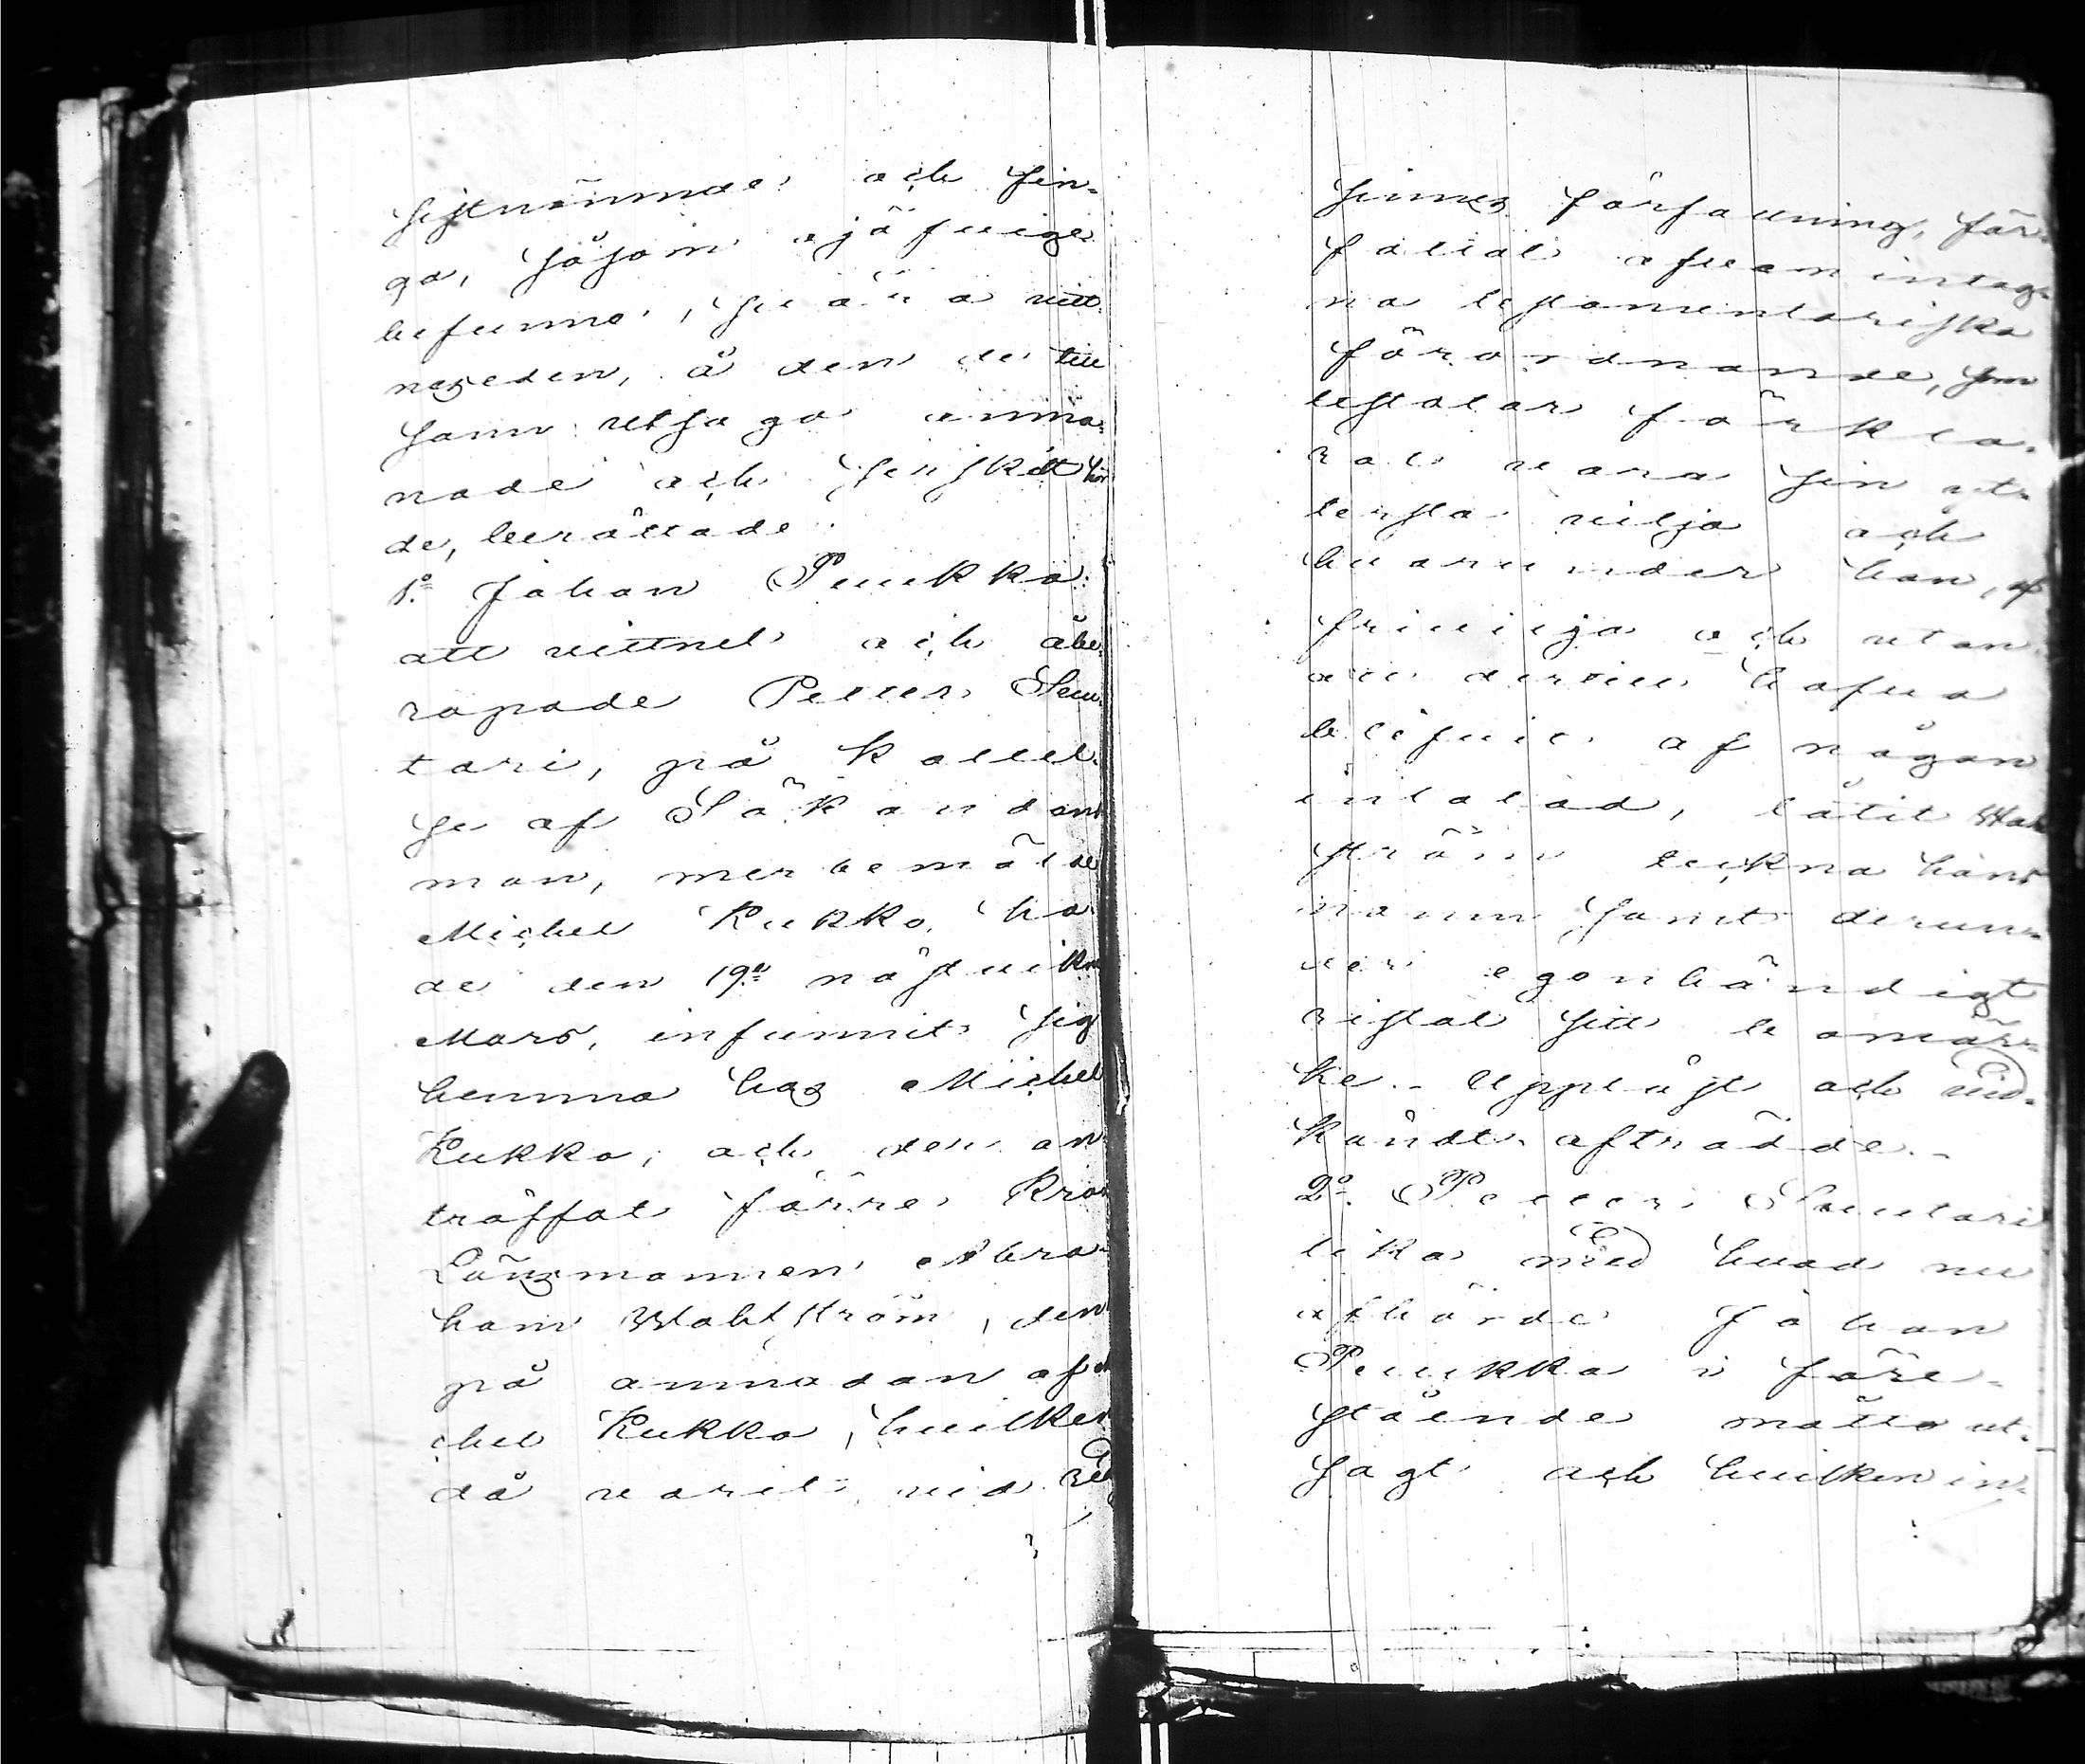 sistnämnde och fin¬
go, såsom ojäfvige
befunne, svära vitt¬
nezeden, å den de till
sann utsago årmi¬
nade och serskilt hör¬
de, berättade:
1:o Johan Puukka:
att vittnet och åbe¬
ropade Petter Sau¬
tari, på kallel¬
se af Sökanden
man, merbemälde
Michel Kukko, ha¬
de den 19:e nästvikne
Mars, infunnit sig
hemma hoz Michel
Kukko, och der an¬
träffat förre Kro¬
Länzmannen Abra¬
ham Wahlström, den
på anmodan af
chel Kukko, hvilken
då varit vid
sinnes författning, för¬
fattat ofvan intag¬
na testamentariska
förordnande, som
testator förkla¬
rat vara sin ytt¬
ersta vilja och
hvarunder han, af
fri vilja och utan
att dertill hafva
blifvit af någon
inlalad, låtit Wahl
ström teckna hans
namn samt derun¬
der egenhändigt
ristat sitt bomär¬
ke. Uppläst och vid¬
kändt; afträdde.
2:o Petter Sautari
lika med hvad nu
afhörde Johan
Puukka i före¬
stående måtto ut¬
sagt och hvilken in¬